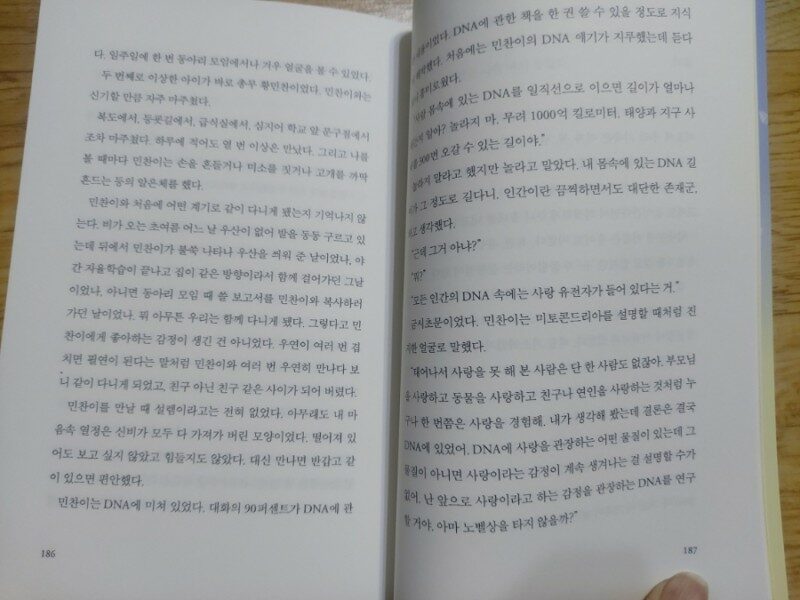 다. 일주일에 한 번 동아리 모임에서나 겨우 얼굴을 볼 수 있었다.
두 번째로 이상한 아이가 바로 총무 황민찬이었다. 민찬이와는
신기할 만큼 자주 마주쳤다.
복도에서, 등굣길에서, 급식실에서, 심지어 학교 앞 문구점에서
조차 마주쳤다. 하루에 적어도 열 번 이상은 만났다. 그리고 나를
볼 때마다 민찬이는 손을 흔들거나 미소를 짓거나 고개를 까딱
흔드는 등의 알은체를 했다.
민찬이와 처음에 어떤 계기로 같이 다니게 됐는지 기억나지 않
는다. 비가 오는 초여름 어느 날 우산이 없어 발을 동동 구르고 있
는데 뒤에서 민찬이가 불쑥 나타나 우산을 씌워 준 날이었나, 야
간 자율학습이 끝나고 집이 같은 방향이라서 함께 걸어가던 그날
이었나, 아니면 동아리 모임 때 쓸 보고서를 민찬이와 복사하러
가던 날이었나. 뭐 아무튼 우리는 함께 다니게 됐다. 그렇다고 민
찬이에게 좋아하는 감정이 생긴 건 아니었다. 우연이 여러 번 겹
치면 필연이 된다는 말처럼 민찬이와 여러 번 우연히 만나다 보
니 같이 다니게 되었고, 친구 아닌 친구 같은 사이가 되어 버렸다.
민찬이를 만날 때 설렘이라고는 전혀 없었다. 아무래도 내 마
음속 열정은 신비가 모두 다 가져가 버린 모양이었다. 떨어져 있
어도 보고 싶지 않았고 힘들지도 않았다. 대신 만나면 반갑고 같
이 있으면 편안했다.
민찬이는 DNA에 미쳐 있었다. 대화의 90퍼센트가 DNA에 관
186
이었다. DNA에 관한 책을 한 권 쓸 수 있을 정도로 지식
했다. 처음에는 민찬이의 DNA 얘기가 지루했는데 듣다
흥미로웠다.
몸속에 있는 DNA를 일직선으로 이으면 길이가 얼마나
알아? 놀라지 마. 무려 1000억 킬로미터. 태양과 지구 사
300번 오갈 수 있는 길이야."
놀라지 말라고 했지만 놀라고 말았다. 내 몸속에 있는 DNA 길
가 그 정도로 길다니, 인간이란 끔찍하면서도 대단한 존재군,
고 생각했다.
"근데 그거 아냐?"
"뭐?"
"모든 인간의 DNA 속에는 사랑 유전자가 들어 있다는 거."
금시초문이었다. 민찬이는 미토콘드리아를 설명할 때처럼 진
지한 얼굴로 말했다.
"태어나서 사랑을 못 해 본 사람은 단 한 사람도 없잖아. 부모님
을 사랑하고 동물을 사랑하고 친구나 연인을 사랑하는 것처럼 누
구나 한 번쯤은 사랑을 경험해. 내가 생각해 봤는데 결론은 결국
DNA에 있었어. DNA에 사랑을 관장하는 어떤 물질이 있는데 그
물질이 아니면 사랑이라는 감정이 계속 생겨나는 걸 설명할 수가
없어. 난 앞으로 사랑이라고 하는 감정을 관장하는 DNA를 연구
할 거야. 아마 노벨상을 타지 않을까?"
187